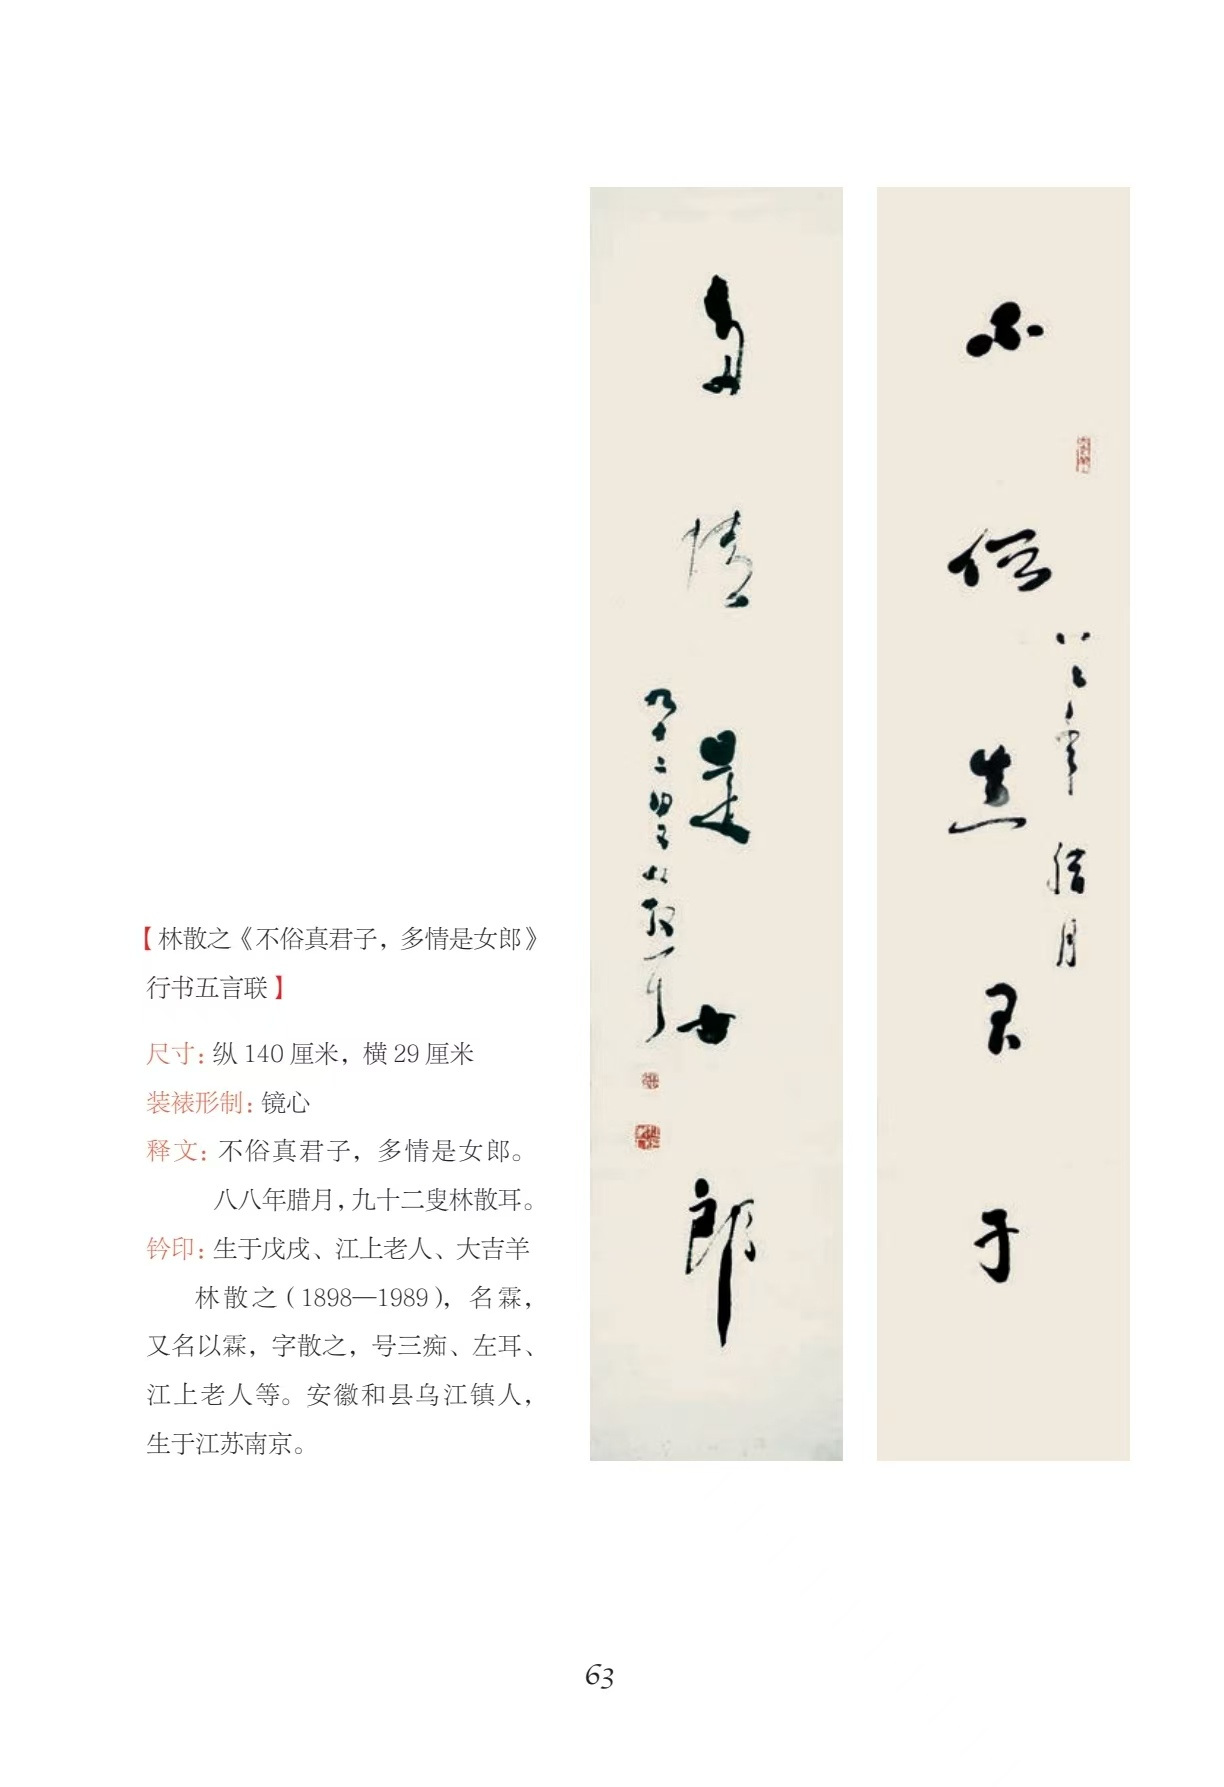 不俗真君子
八八年腊月
多情是女郎
九十二叟林散耳
【林散之《不俗真君子，多情是女郎》
行书五言联】
尺寸：纵 140 厘米，横 29 厘米
装裱形制：镜心
释文：不俗真君子，多情是女郎。
八八年腊月，九十二叟林散耳。
钤印：生于戊戌、江上老人、大吉羊
林散之（1898—1989），名霖，
又名以霖，字散之，号三痴、左耳、
江上老人等。安徽和县乌江镇人，
生于江苏南京。
63